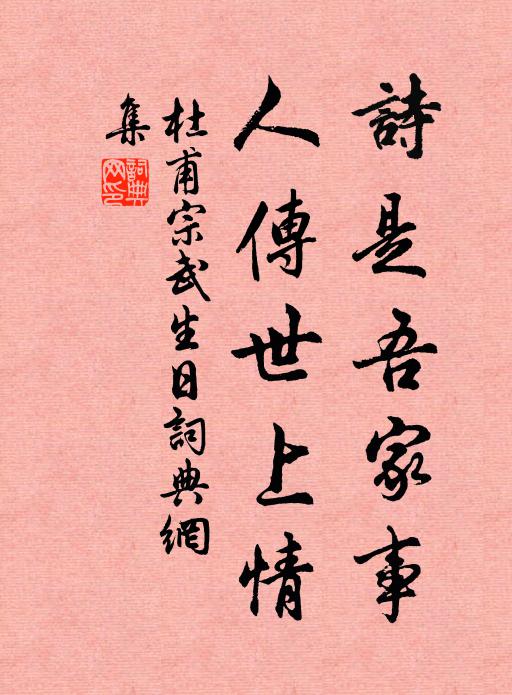 詩是吾家事
人傳世上情
杜甫宗武生日詞典網
集
詞典網印